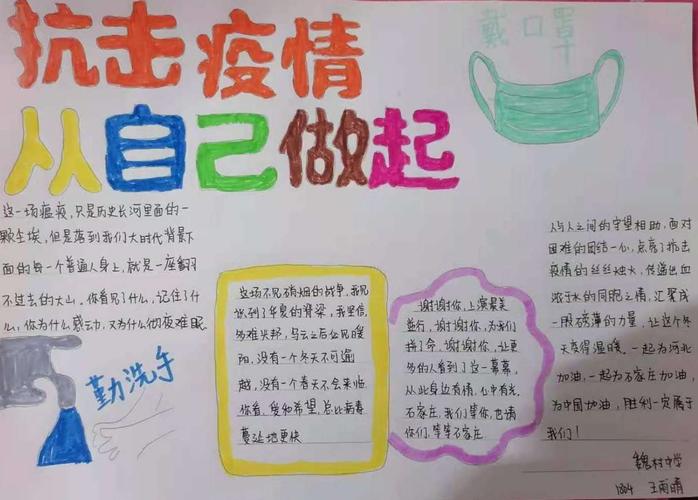 抗击疫情
从自己做起
戴口罩
这一场瘟疫，只是历史长河里面的一
颗尘埃，但是落到我们大时代背景下
面的每一个普通人身上，就是一座翻
不过去的大山。你看见了什么，记住了什
么，你为什么感动，又为什么彻夜难眠
勤洗手
这场不见硝烟的战争，我见
识到了华夏的脊梁，我坚信，
多难兴邦，乌云之后必见暖
阳，没有一个冬天不可逾
越，没有一个春天不会来临
你看，爱和希望，总比病毒
蔓延地更快
谢谢你，上演最美
逆行，谢谢你，为我们
拼了命，谢谢你，让更
多的人看到了这一幕幕，
从此身边有情，心中有光
石家庄，我们等你，也请
你们，等等石家庄
人与人之间的守望相助，面对
困难的团结一心，点亮了抗击
疫情的丝丝烛火，传递出血
浓于水的同胞之情，汇聚成
一股磅薄的力量，让这个冬
天变得温暖。一起为河北
加油，一起为石家庄加油，
为中国加油，胜利一定属于
我们！
魏村中学
1804 王雨晴